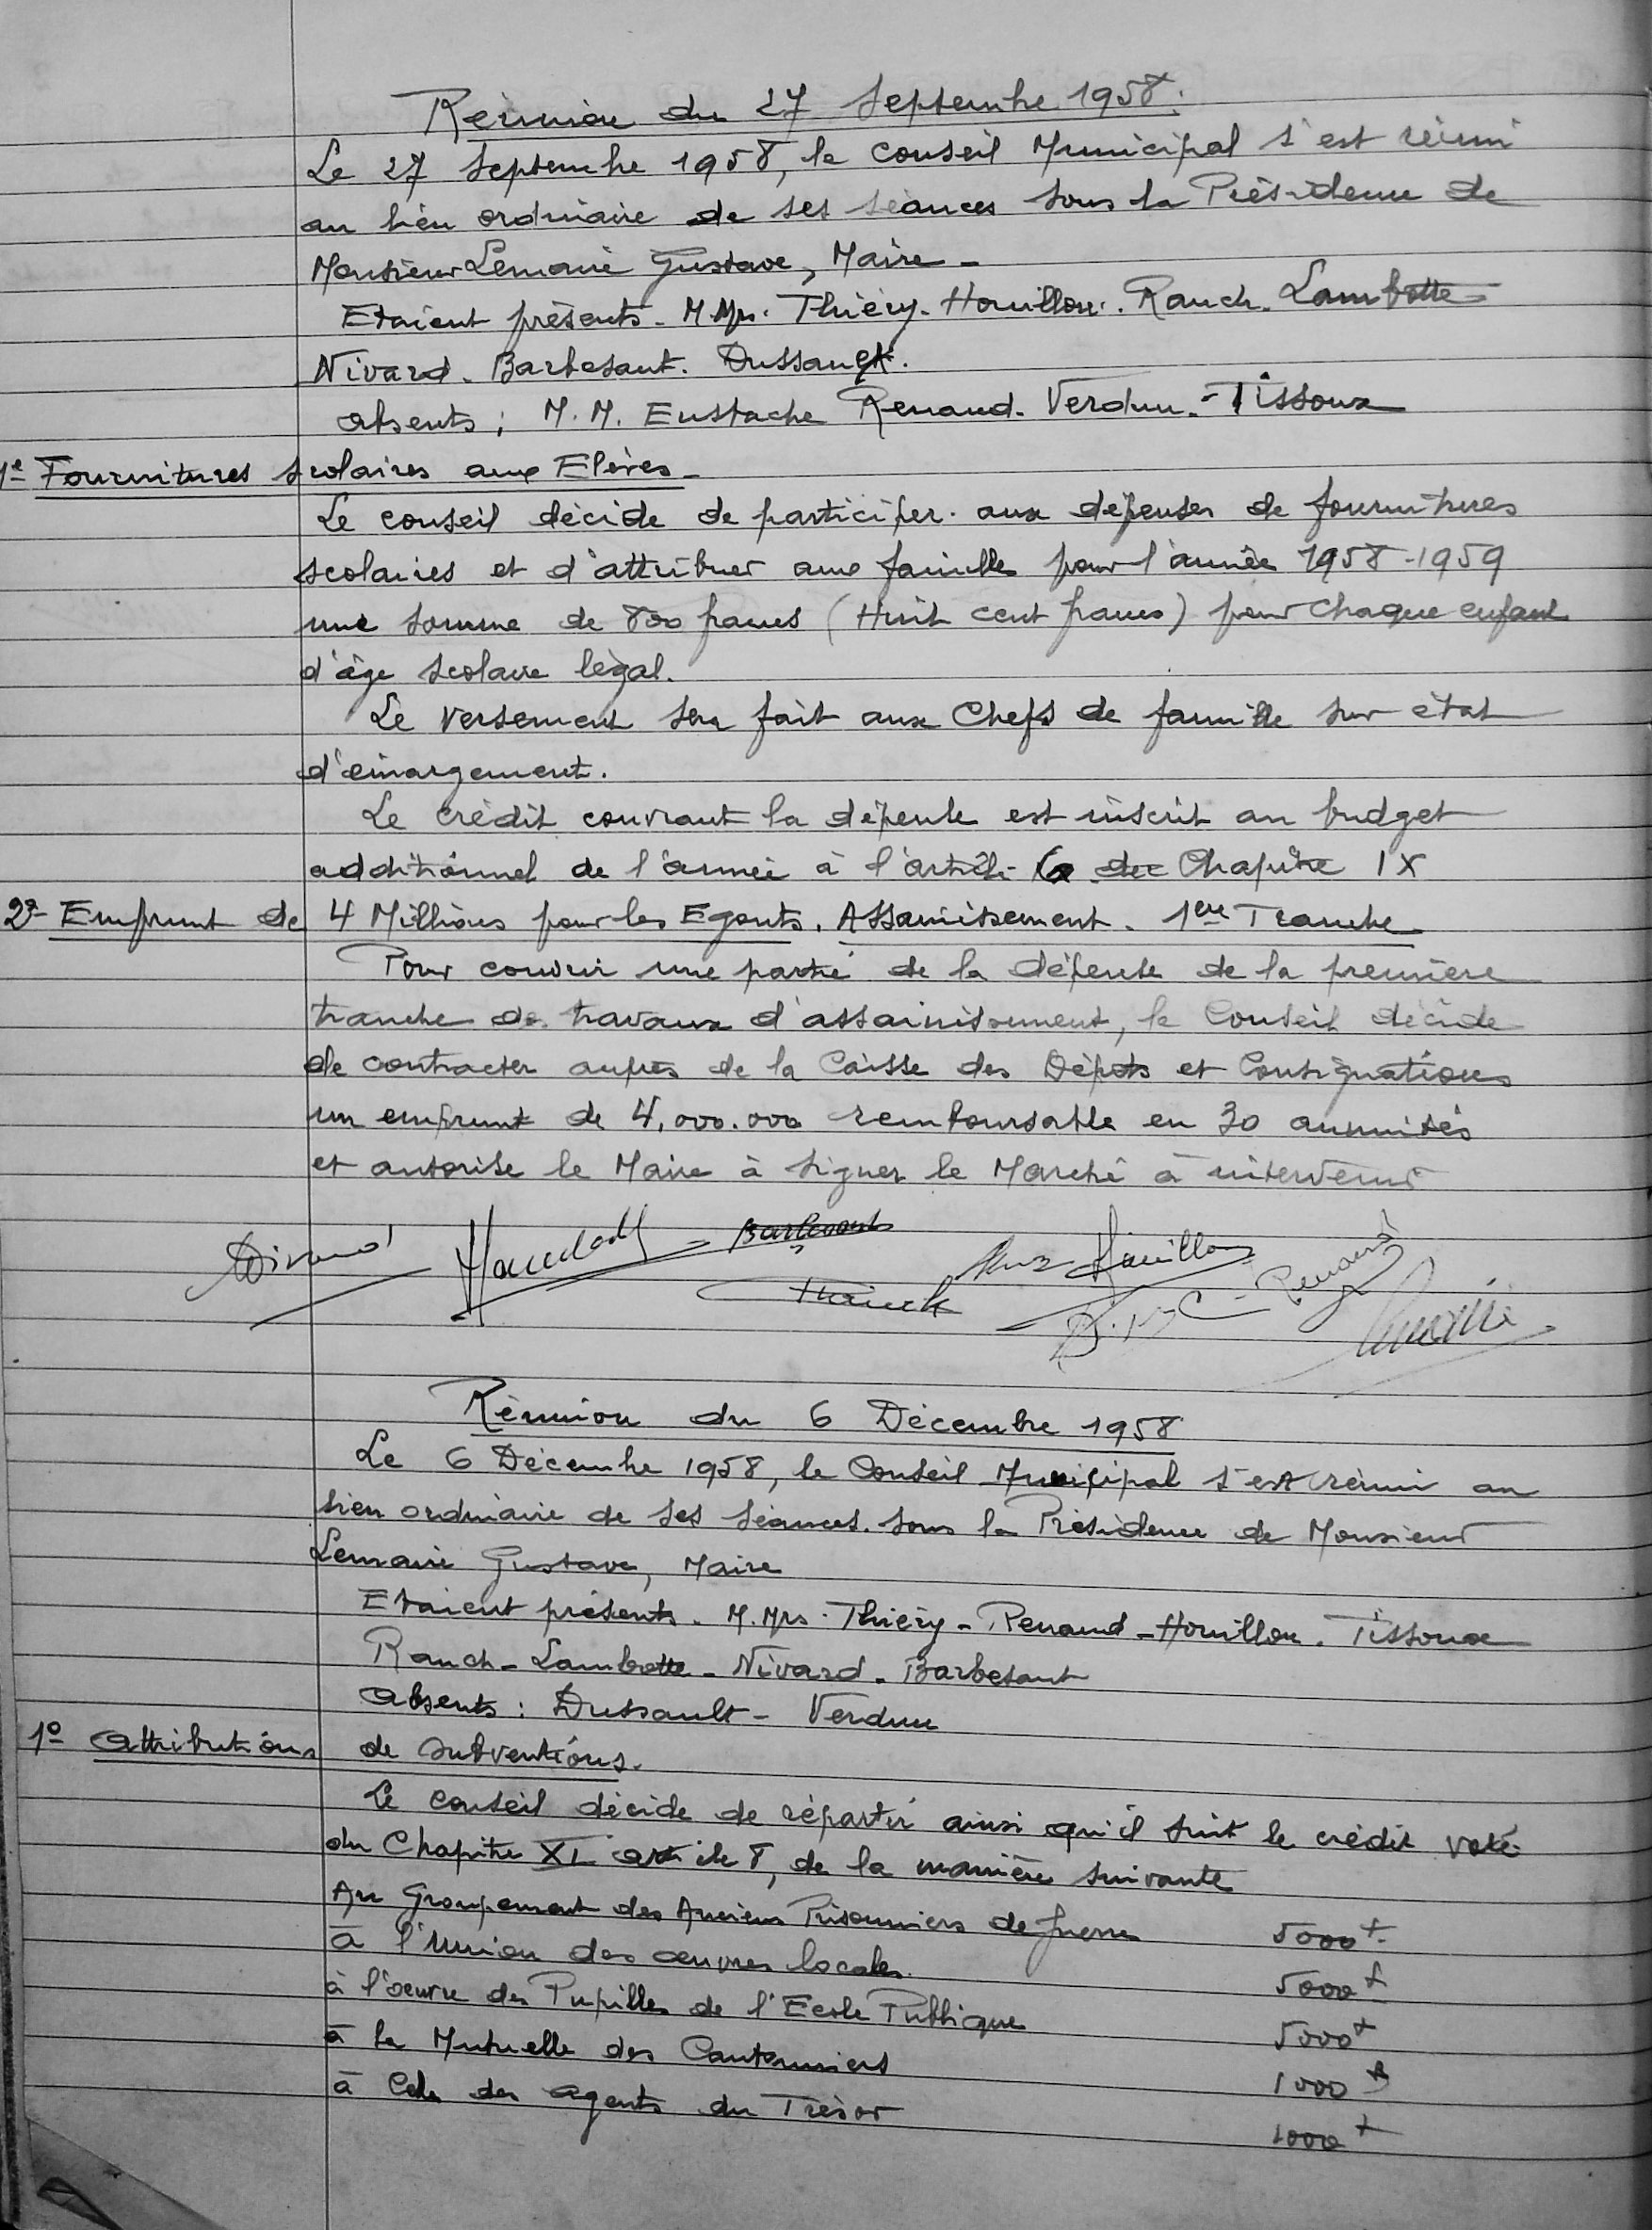 Réunion du 27 Septembre 1958.
Le 27 Septembre 1958, le Conseil Municipal s'est réuni
au lieu ordinaire de ses séances sous la Présidence de
Monsieur Lemaire Gustave, Maire -
Etaient présents - M. Mrs. Thiéry - Houillon . Rauch - Lambotte
Nivard - Barbesant . Dussault.
absents : M. M. Eustache Renaud - Verdun - Tissoux
1e Fournitures scolaires aux Elèves -
Le conseil décide de participer aux dépenses de fournitures
scolaires et d'attribuer aux familles pour l'année 1958-1959
une somme de 800 francs (Huit cent francs) pour chaque enfant
d'âge scolaire légal.
Le versement sera fait aux Chefs de famille sur état
d'émargement.
Le crédit couvrant la dépense est inscrit au budget
additionnel de l'année à l'article Chapitre IX
2e - Emprunt de 4 Millions pour les Egouts. Assainissement. 1ere Tranche
Pour couvrir une partie de la dépense de la première
tranche de travaux d'assainissement, le Conseil décide
de contracter auprès de la Caisse des Dépots et Consignations
un emprunt de 4.000.000 remboursable en 30 annuités
et autorise le Maire à signer le Marché à intervenir
Nivard Barbesant
Houillon Renaud
Rauch Lemaire
Réunion du 6 Décembre 1958
Le 6 Décembre 1958, le Conseil Municipal s'est réuni au
lieu ordinaire de ses séances sous la Présidence de Monsieur
Lemaire Gustave, Maire
Etaient présents - M. Mrs. Thiéry - Renaud - Houillon . Tissoux
Rauch - Lambotte - Nivard - Barbesant
absents : Dussault - Verdun
1° Attributions de subventions.
Le conseil décide de répartir ainsi qu'il suit le crédit voté
du Chapitre XI article 8, de la manière suivante
Au Groupement des Anciens Prisonniers de guerre 5000 f
à l'Union des œuvres locales. 5000 f
à l'œuvre des Pupilles de l'Ecole Publique 5000 f
à la Mutuelle des Cantonniers 1000 f
à Celle des agents du Trésor 1000 f